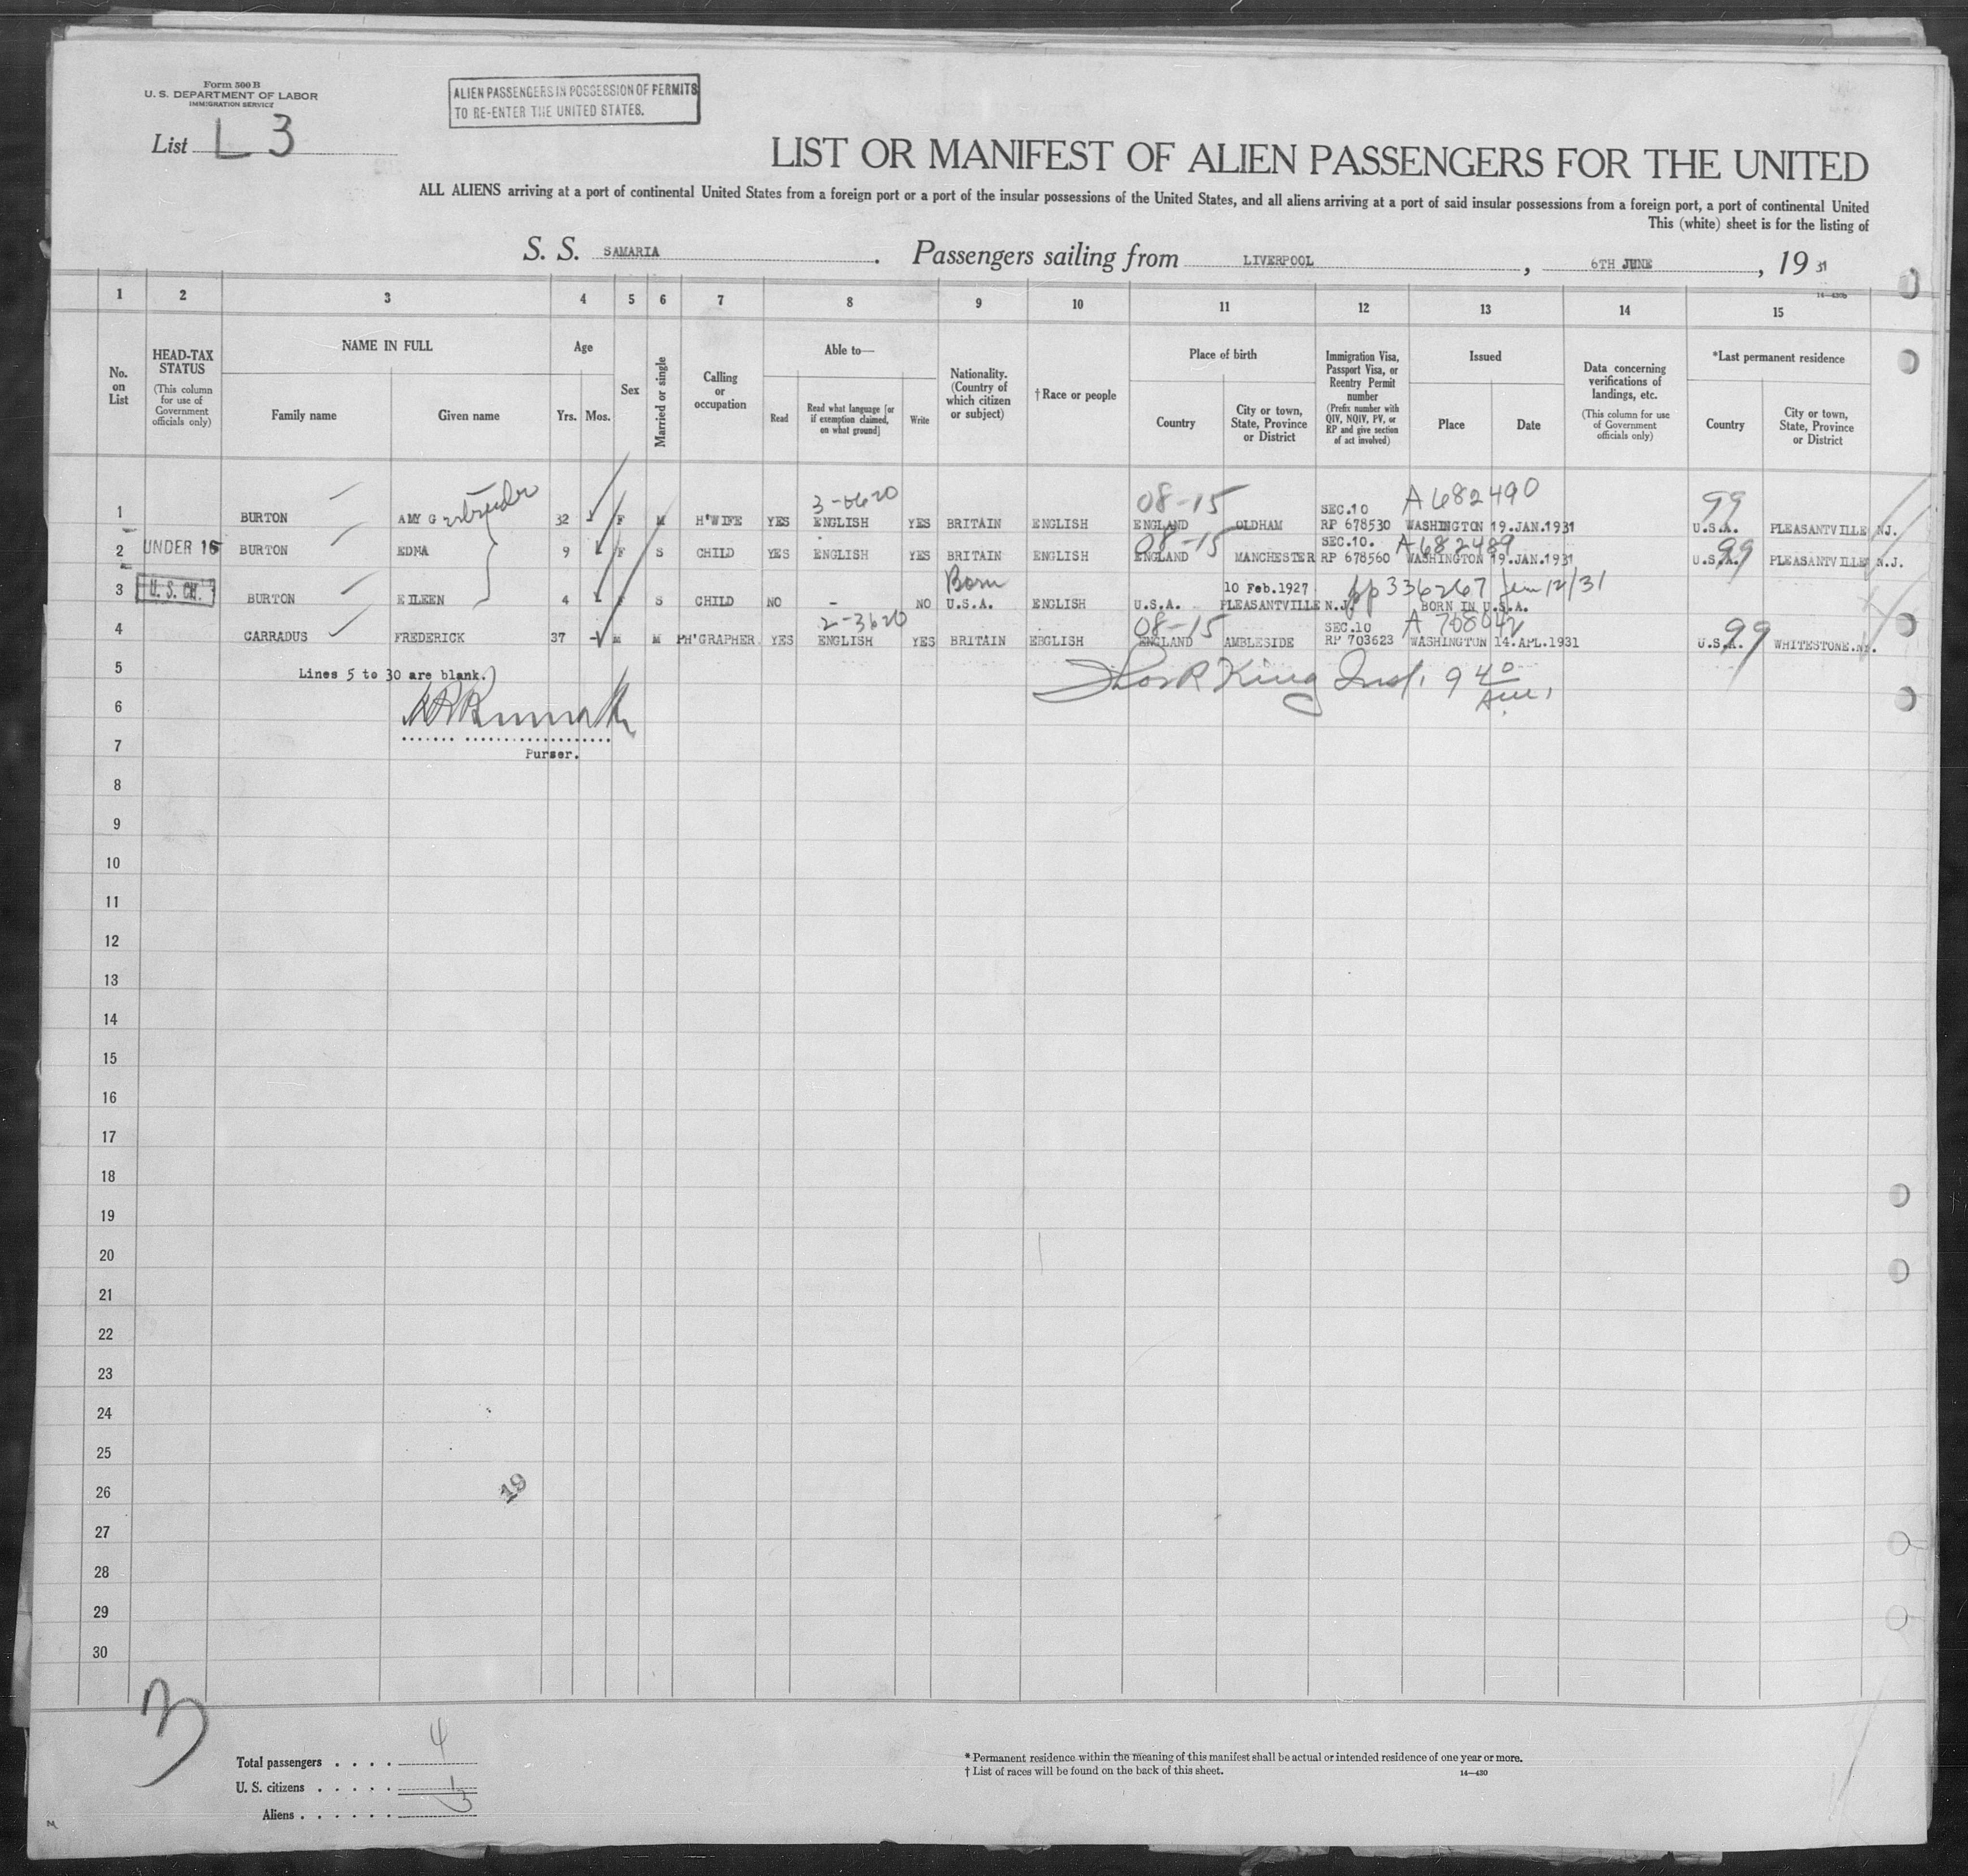 Form 500 B
U. S. DEPARTMENT OF LABOR
IMMIGRATION SERVICE
List L 3
ALIEN PASSENGERS IN POSSESSION OF PERMITS
TO RE-ENTER THE UNITED STATES.
LIST OR MANIFEST OF ALIEN PASSENGERS FOR THE UNITED
ALL ALIENS arriving at a port of continental United States from a foreign port or a port of the insular possessions of the United States, and all aliens arriving at a port of said insular possessions from a foreign port, a port of continental United
This (white) sheet is for the listing of
S. S. SAMARIA. Passengers sailing from LIVERPOOL, 6TH JUNE, 19 31
14—430b
1 2 3 4 5 6 7 8 9 10 11 12 13 14 15
No. on List
HEAD-TAX STATUS (This column for use of Government officials only)
NAME IN FULL
Family name
Given name
Age
Yrs. Mos.
Sex
Married or single
Calling or occupation
Able to—
Read
Read what language [or if exemption claimed, on what ground]
Write
Nationality. (Country of which citizen or subject)
†Race or people
Place of birth
Country
City or town, State, Province or District
Immigration Visa, Passport Visa, or Reentry Permit number (Prefix number with QIV, NQIV, PV, or RP and give section of act involved)
Issued
Place
Date
Data concerning verifications of landings, etc. (This column for use of Government officials only)
*Last permanent residence
Country
City or town, State, Province or District
3-0620 08-15 SEC.10 A682490 99
1 BURTON AMY Gertrude 32 F M H'WIFE YES ENGLISH YES BRITAIN ENGLISH ENGLAND OLDHAM RP 678530 WASHINGTON 19.JAN.1931 U.S.A. PLEASANTVILLE NJ.
08-15 SEC.10. A682489 99
2 UNDER 16 BURTON EDNA 9 F S CHILD YES ENGLISH YES BRITAIN ENGLISH ENGLAND MANCHESTER RP 678560 WASHINGTON 19.JAN.1931 U.S.A. PLEASANTVILLE N.J.
Born 10 Feb.1927 pp 336267 Jan 12/31
3 U.S. CH. BURTON EILEEN 4 F S CHILD NO - NO U.S.A. ENGLISH U.S.A. PLEASANTVILLE N.J. BORN IN U.S.A.
2-3620 08-15 SEC.10 A 99
4 CARRADUS FREDERICK 37 M M PH'GRAPHER. YES ENGLISH YES BRITAIN EBGLISH ENGLAND AMBLESIDE RP 703623 WASHINGTON 14.APL.1931 U.S.A. WHITESTONE.
5 Lines 5 to 30 are blank.)
King Insp. 9 40 am.
6
7
Purser.
8
9
10
11
12
13
14
15
16
17
18
19
20
21
22
23
24
25
26
19
27
28
29
30
3
Total passengers . . . . 4
U. S. citizens . . . . . 1
Aliens . . . . . . 3
* Permanent residence within the meaning of this manifest shall be actual or intended residence of one year or more.
† List of races will be found on the back of this sheet.
14—430